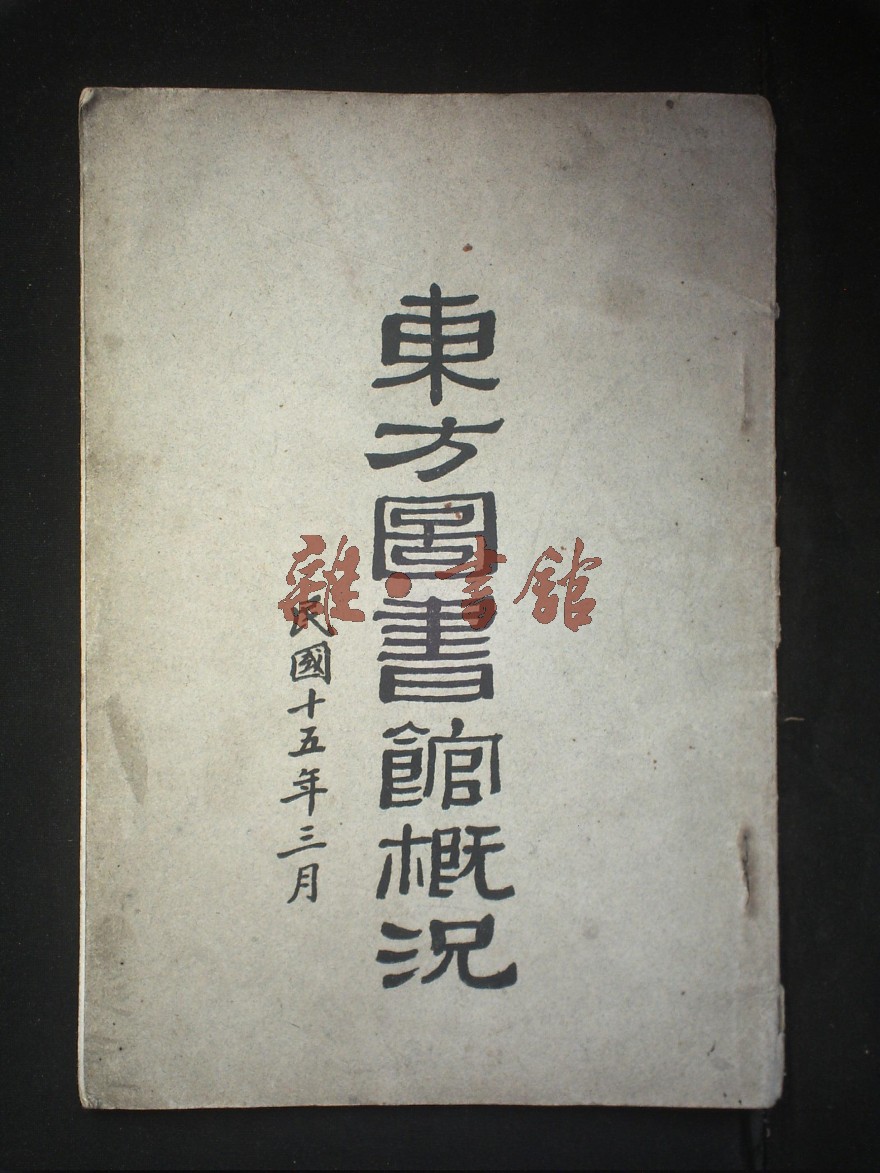 東方圖書館概况
民國十五年三月
雜·書館